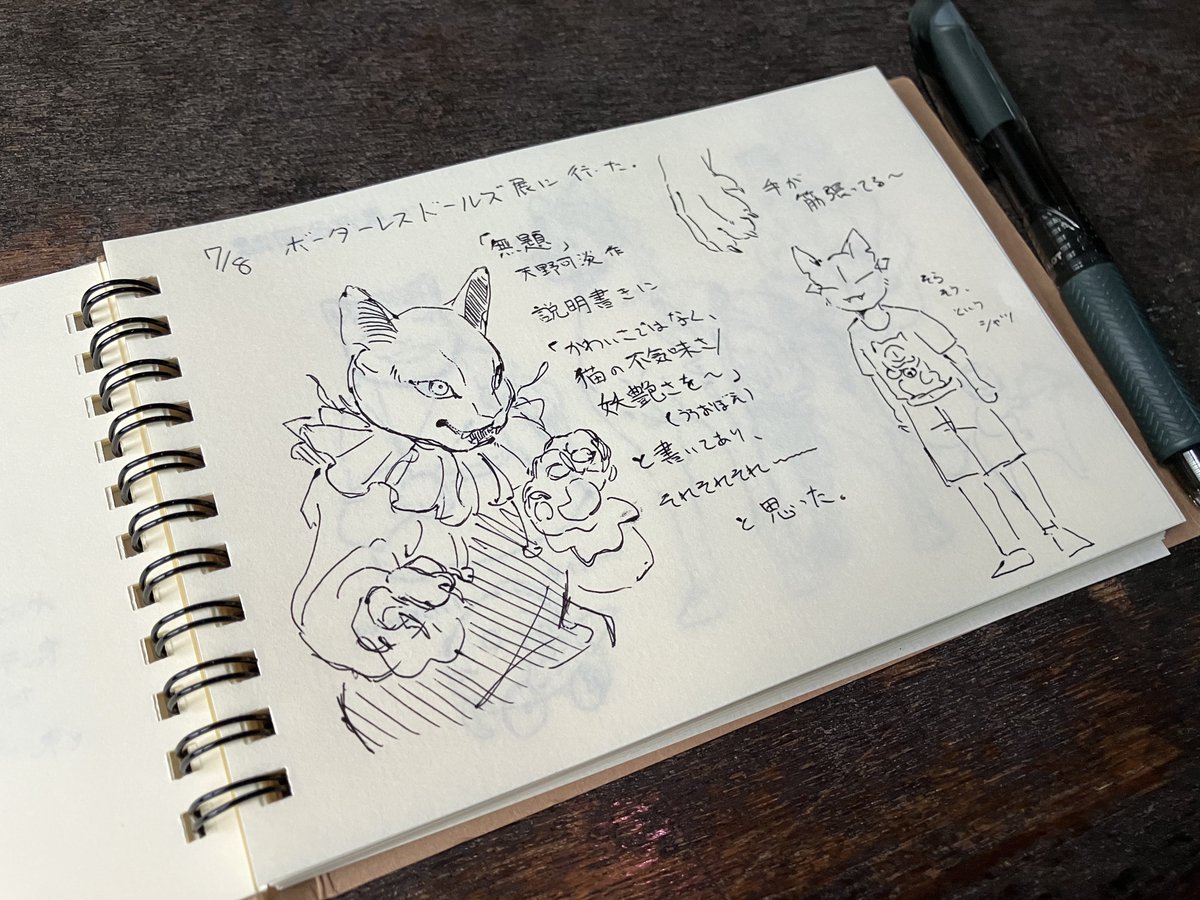 7/8 ボーダーレスドールズ展に行った。
「無題」
天野可淡 作
説明書きに
「かわいこではなく、
猫の不気味さ/
妖艶さを〜」
(うろおぼえ)
と書いてあり、
それそれそれ〜
と思った。
手が
筋張ってる〜
そう
そう、
という
シャツ